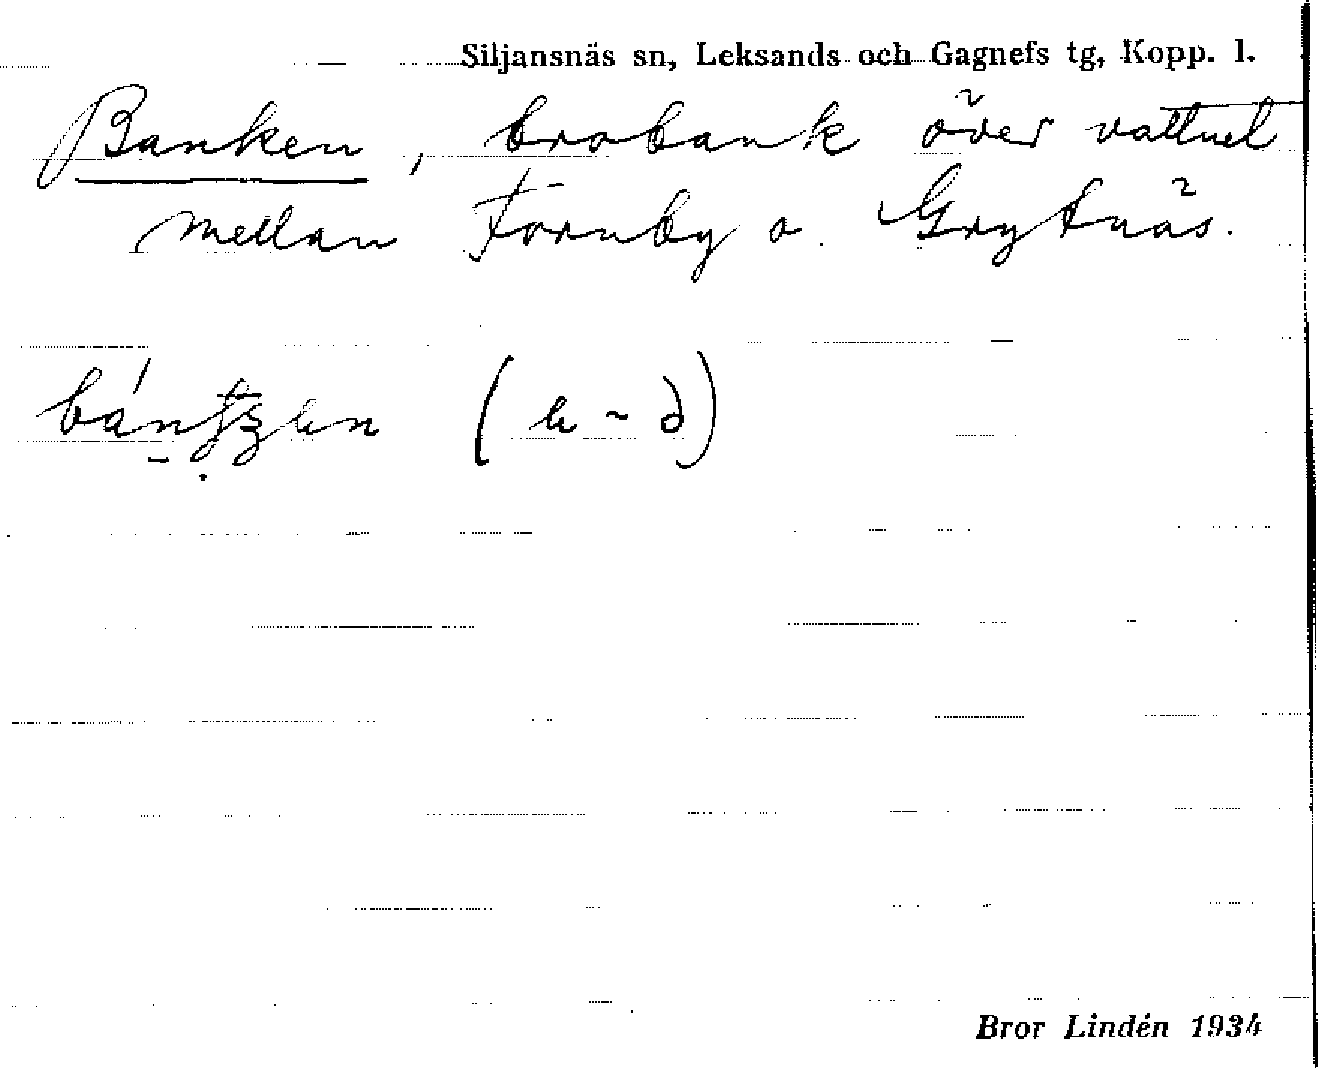 Siljansnäs sn, Leksands och Gagnefs tg, Kopp. l.
Banken, brobank över vattnet
mellan Fornby o. Grytnäs.
Bror Lindén 1934